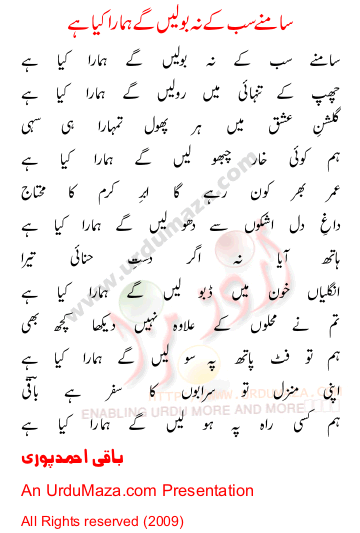 سامنے سب کے نہ بولیں گے ہمارا کیا ہے
سامنے سب کے نہ بولیں گے ہمارا کیا ہے
چھپ کے تنہائی میں رولیں گے ہمارا کیا ہے
گلشنِ عشق میں ہر پھول تمہارا ہی سہی
ہم کوئی خار چبھو لیں گے ہمارا کیا ہے
عمر بھر کون رہے گا ابرِ کرم کا محتاج
داغِ دل اشکوں سے دھو لیں گے ہمارا کیا ہے
ہاتھ آیا نہ اگر دستِ حنائی تیرا
انگلیاں خون میں ڈبو لیں گے ہمارا کیا ہے
تم نے محلوں کے علاوہ نہیں دیکھا کچھ بھی
ہم تو فٹ پاتھ پہ سو لیں گے ہمارا کیا ہے
اپنی منزل تو سرابوں کا سفر ہے باقی
ہم کسی راہ پہ ہو لیں گے ہمارا کیا ہے
باقی احمدپوری
An UrduMaza.com Presentation
All Rights reserved (2009)
www.urdumaza.com
اردو مزا
HTTP://WWW.URDUMAZA.COM
ENABLING URDU MORE AND MORE